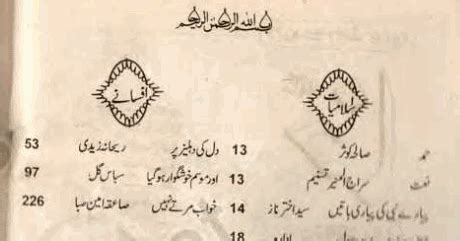 بسم الله الرحمن الرحيم
اسلامیات
حمد صالحہ کوثر 13
نعت سراج المنیر تسنیم 13
پیارے نبی کی پیاری باتیں سید اختر ناز 14
ادارہ 18
افسانے
دل کی دہلیز پر ریحانہ زیدی 53
اور موسم خوشگوار ہو گیا سباس گل 97
خواب مرتے نہیں صاعقہ امین صبا 226